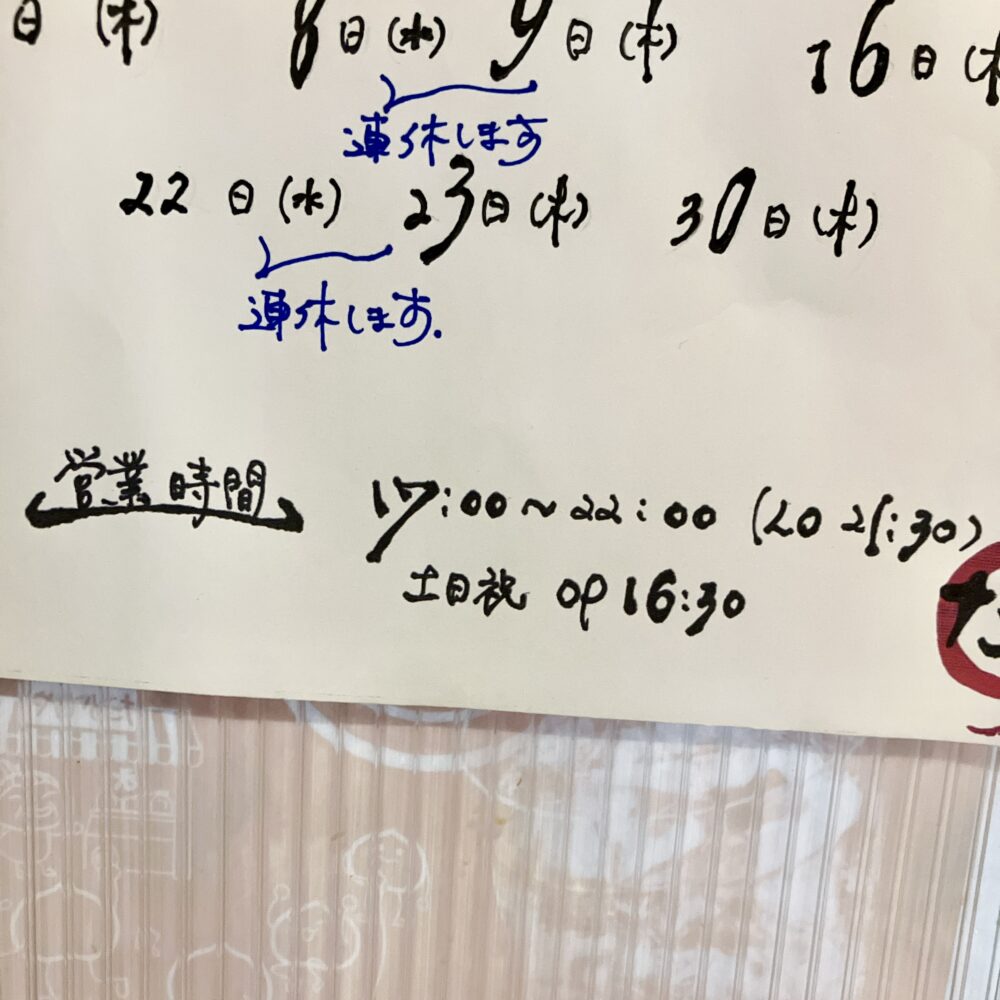 日(木) 8日(水) 9日(木) 16日(木
連休します
22日(水) 23日(木) 30日(木)
連休します.
営業時間 17:00~22:00 (LO 21:30)
土日祝 OP 16:30